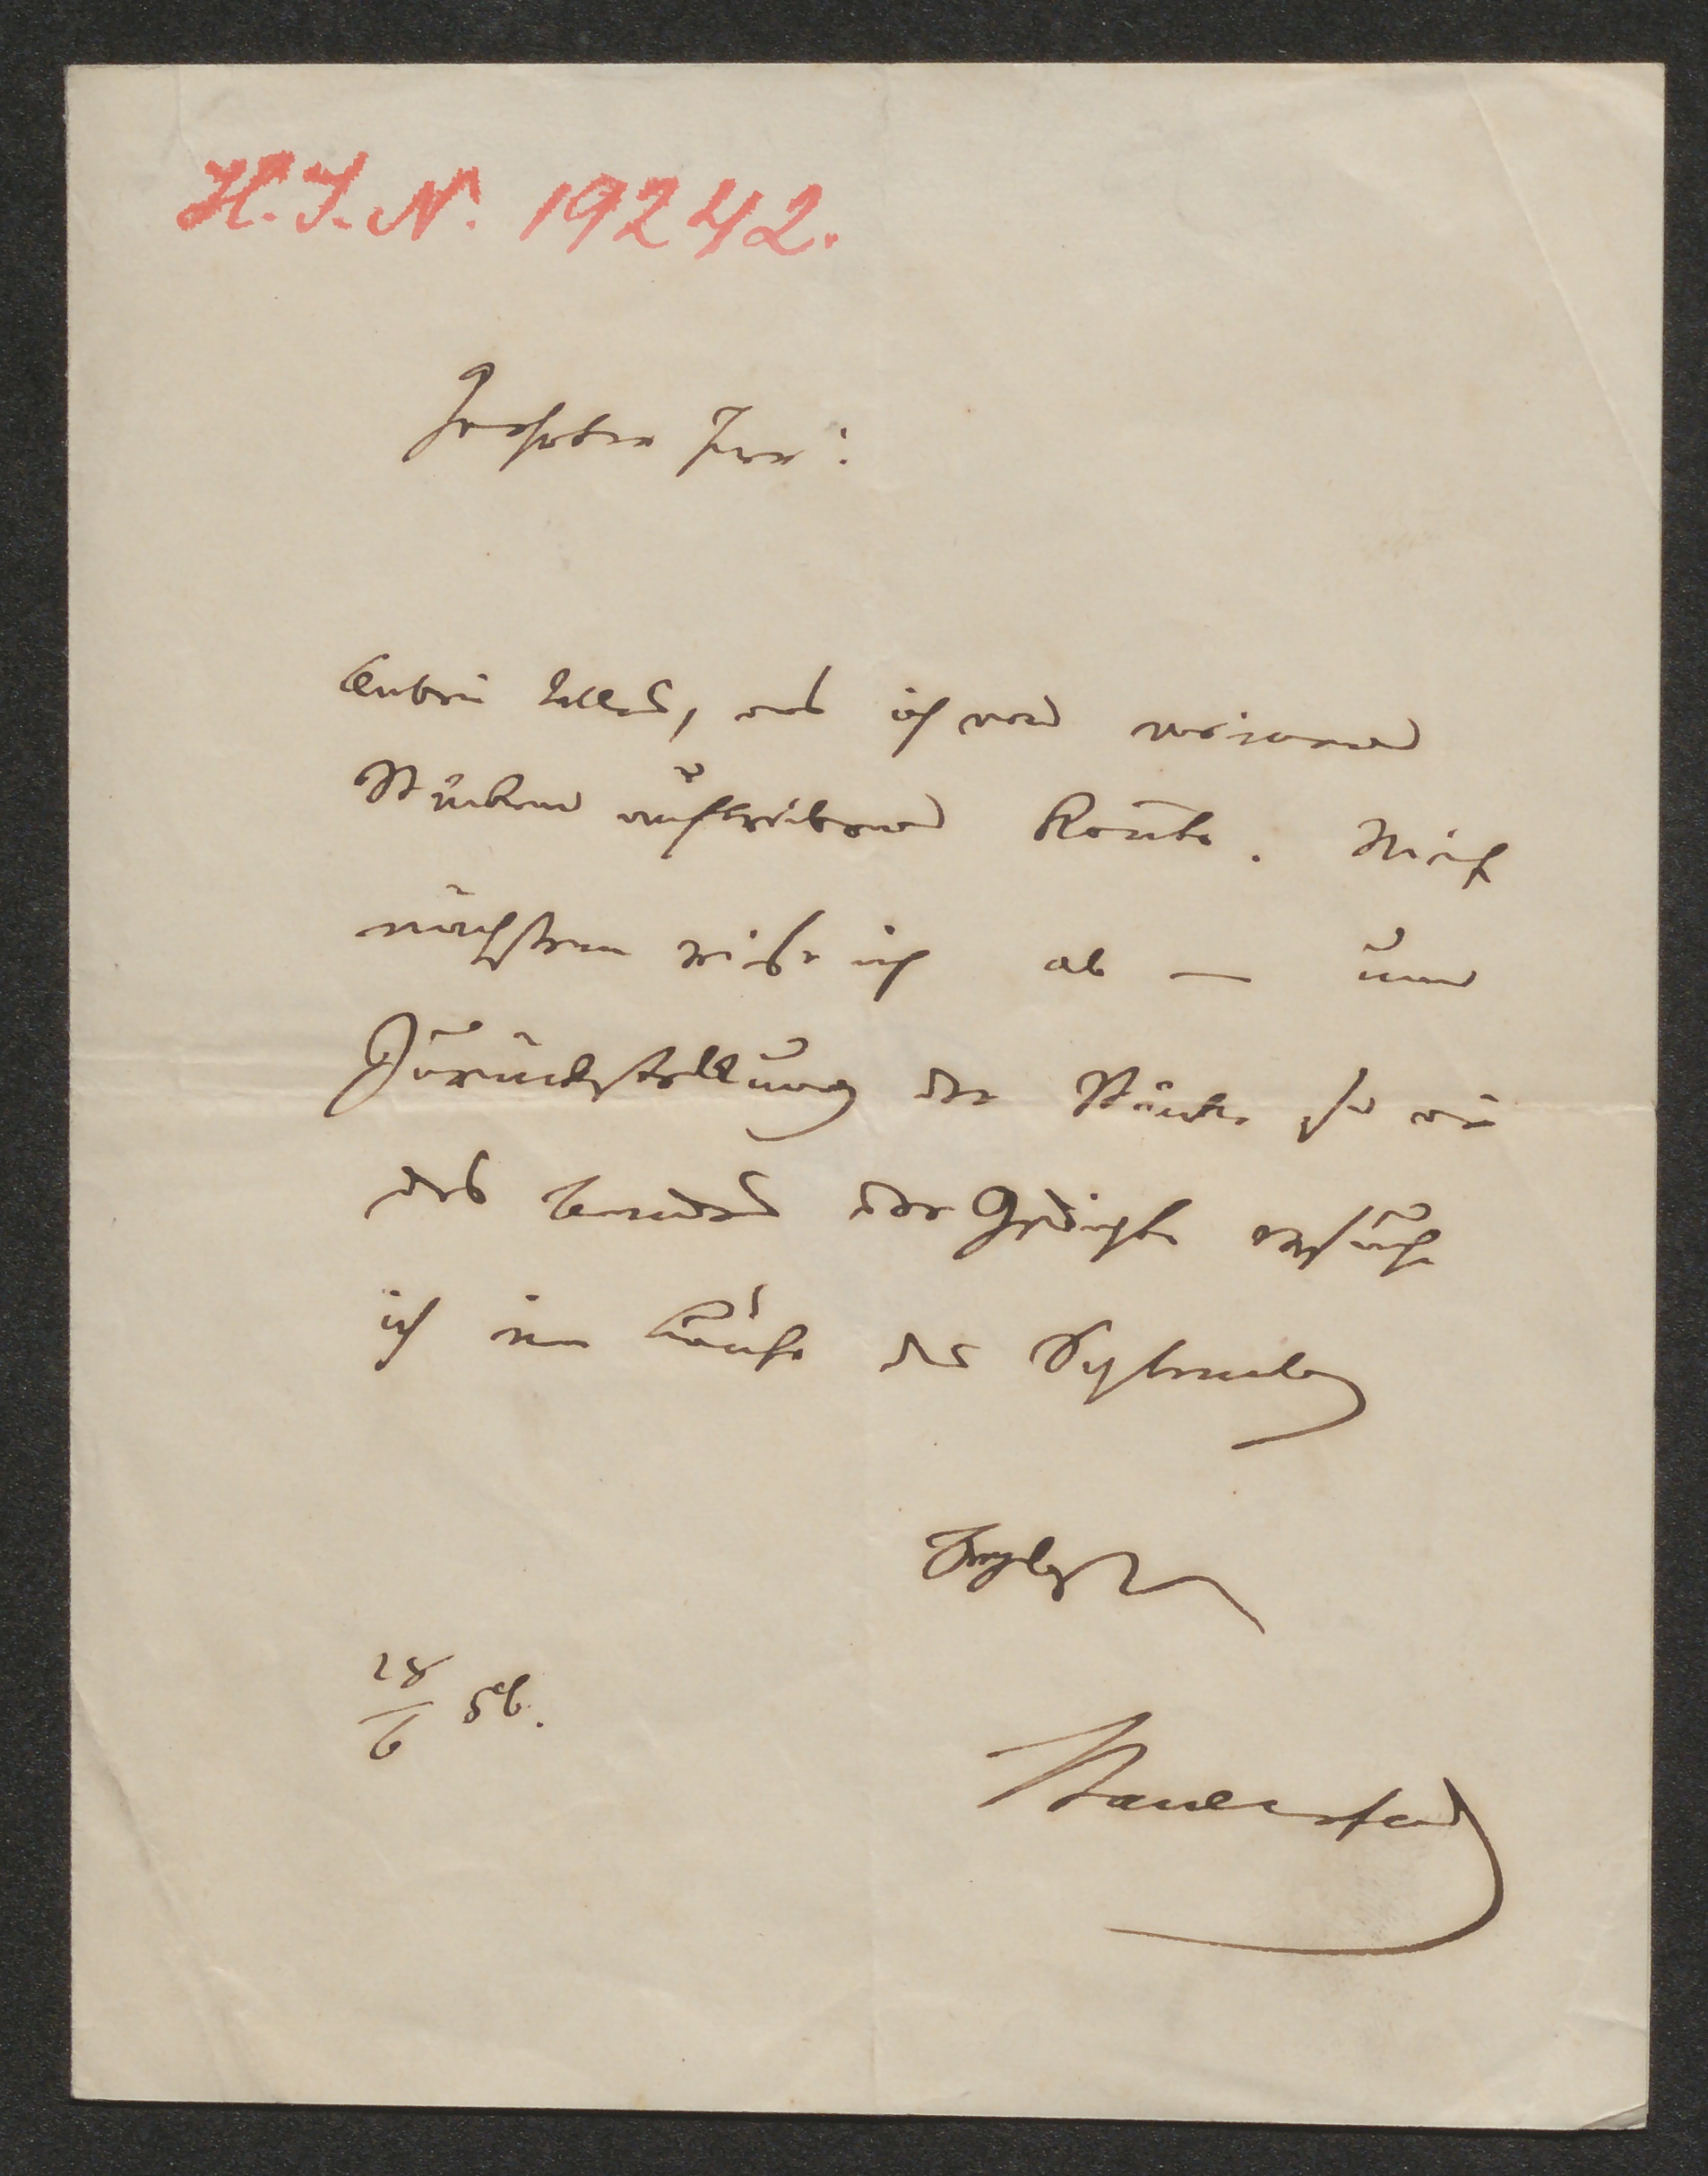 H. I. N. 19242.
Geehrter Herr!
Anbei Alles, was ich von meinen
Stücken auftreiben konnte. Nächst
nächstem reise ich ab — um
Zurückstellung der Stücke so wie
des Bandes der Gedichte ersuche
ich im Laufe des September
28/6 56.
Bauernfeld